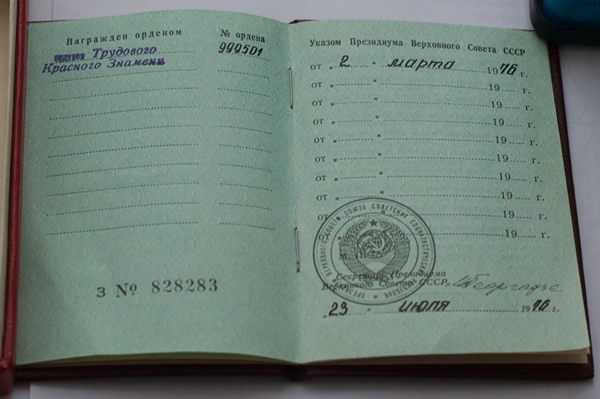 Награжден орденом
№ ордена
орденом Трудового
Красного Знамени
999501
З № 828283
Указом Президиума Верховного Совета СССР
от „ 2 “ марта 1976 г.
от „ “ 19 г.
от „ “ 19 г.
от „ “ 19 г.
от „ “ 19 г.
от „ “ 19 г.
от „ “ 19 г.
от „ “ 19 г.
от „ “ 19 г.
М. П.
Секретарь Президиума
Верховного Совета СССР
„ 23 “ июля 1976 г.